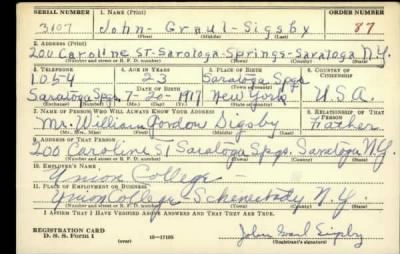 SERIAL NUMBER 1. NAME (Print) ORDER NUMBER
3107 John - Graul - Sigsby 87
(First) (Middle) (Last)
2. ADDRESS (Print)
200 Caroline ST - Saratoga - Springs - Saratoga N.Y.
(Number and street or R. F. D. number) (Town) (County) (State)
3. TELEPHONE 4. AGE IN YEARS 5. PLACE OF BIRTH 6. COUNTRY OF CITIZENSHIP
1054 23 Saratoga Spgs.
DATE OF BIRTH (Town or county)
Saratoga Spgs. 7 - 20 - 1917 New York U.S.A.
(Exchange) (Number) (Mo.) (Day) (Yr.) (State or country)
7. NAME OF PERSON WHO WILL ALWAYS KNOW YOUR ADDRESS 8. RELATIONSHIP OF THAT PERSON
Mr. William Gordon Sigsby Father
(Mr., Mrs., Miss) (First) (Middle) (Last)
9. ADDRESS OF THAT PERSON
200 Caroline ST Saratoga Spgs. Saratoga N.Y.
(Number and street or R. F. D. number) (Town) (County) (State)
10. EMPLOYER'S NAME
Union College -
11. PLACE OF EMPLOYMENT OR BUSINESS
Union College - Schenectady N.Y.
(Number and street or R. F. D. number) (Town) (County) (State)
I AFFIRM THAT I HAVE VERIFIED ABOVE ANSWERS AND THAT THEY ARE TRUE.
REGISTRATION CARD
D. S. S. Form 1 (over) 16-17105 John Graul Sigsby
(Registrant's signature)